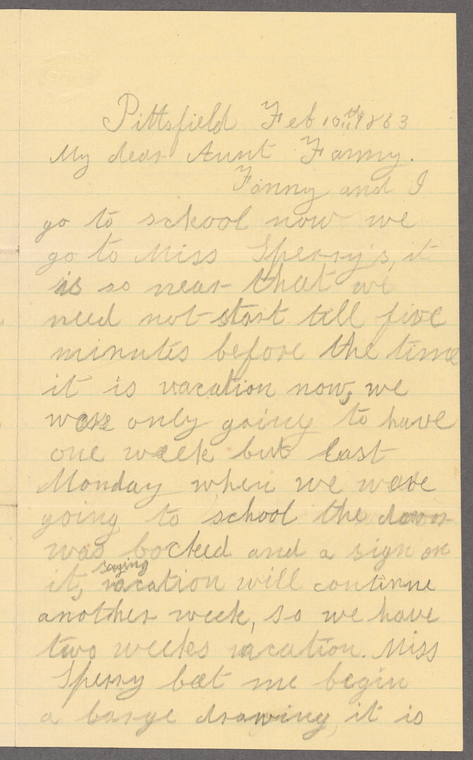 Pittsfield Feb 10th 1863
My dear Aunt Fanny.
Fanny and I
go to school now we
go to Miss Sperry's, it
is so near that we
need not start till five
minutes before the time
it is vacation now, we
were only going to have
one week but last
Monday when we were
going to school the door
was locked and a sign on
it, saying vacation will continue
another week, so we have
two weeks vacation. Miss
Sperry let me begin
a large drawing, it is